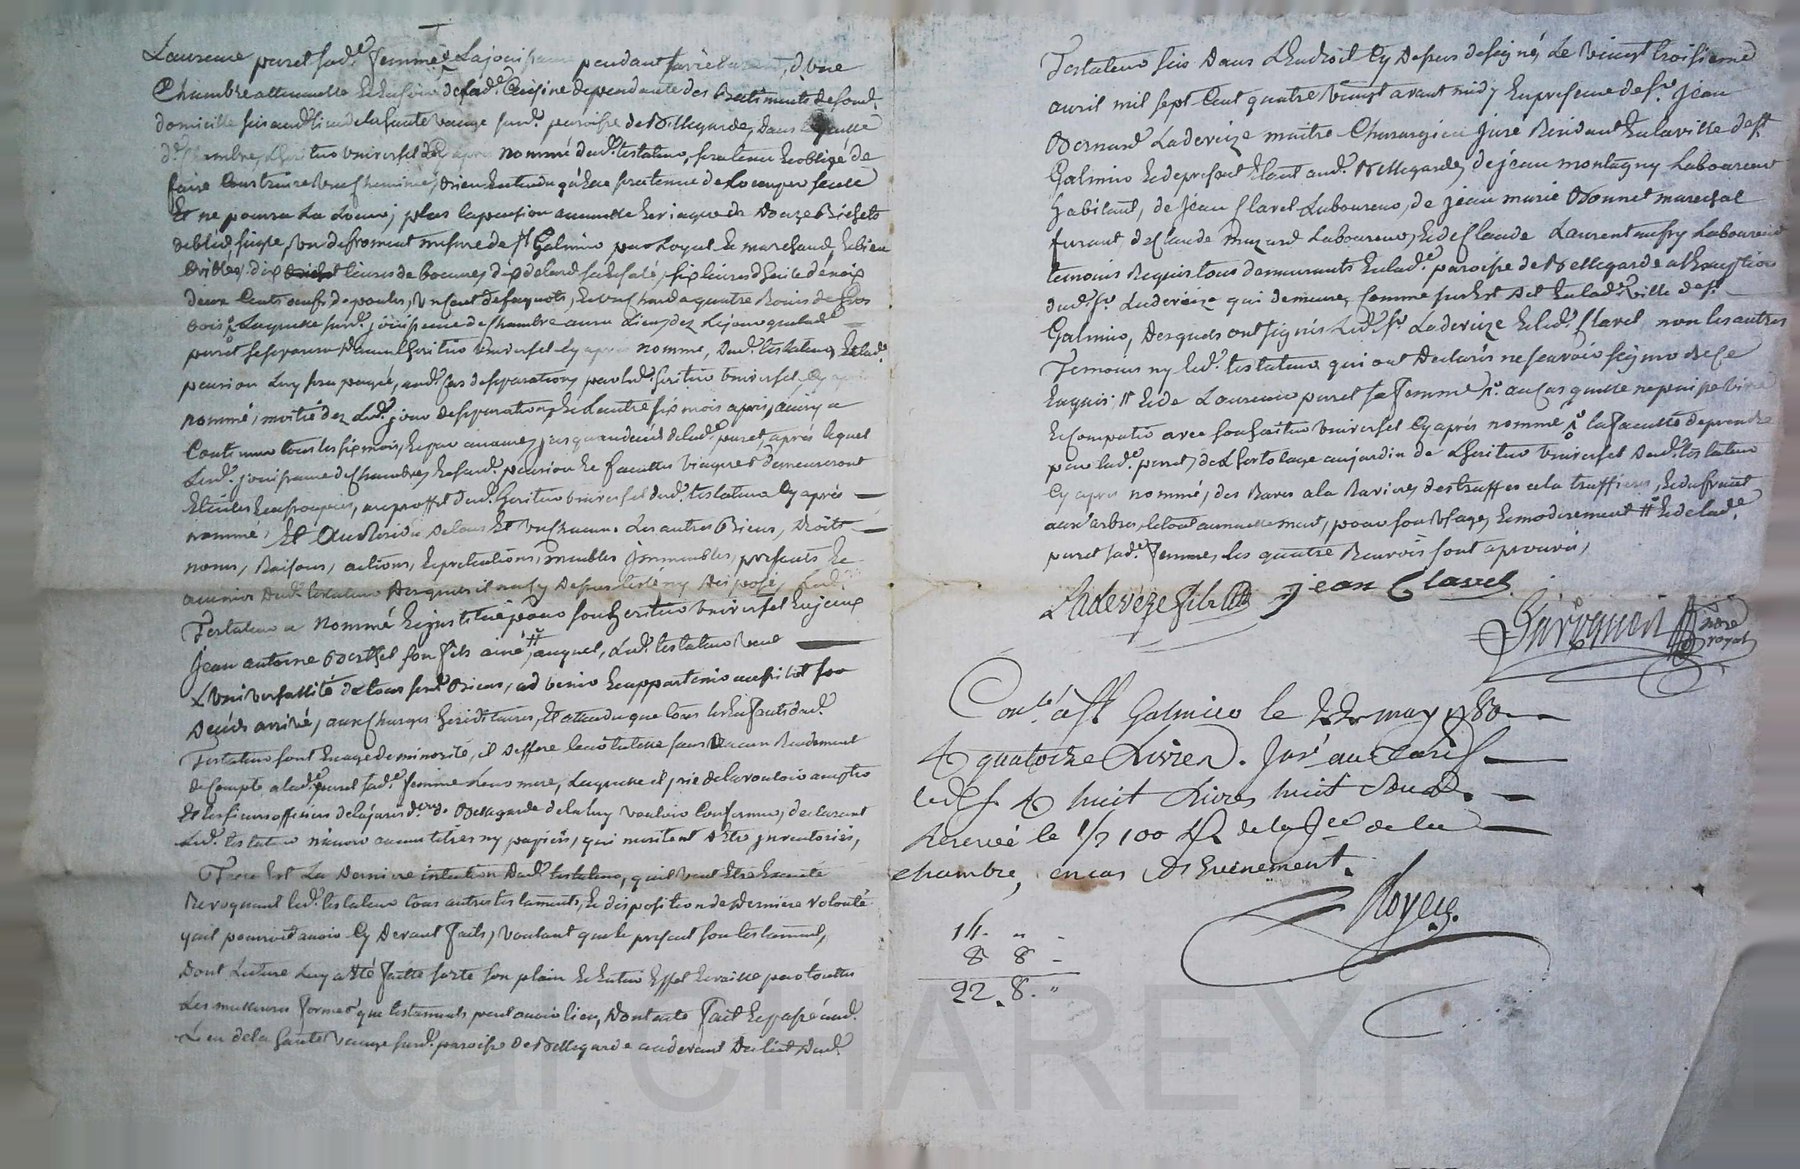 Laurence puret sad.e femme La jouissance pendant sa vie d'une
Chambre attenante de sad.e Cuisine dependante des Batiments desond.
domicille sis aud. lieu de la haute vauge surd. paroisse de Bellegarde, dans laquelle
d.e Chambre, L'heritier universel Cy apres nommé dud. testateur, sera tenu et obligé de
faire Construire une Cheminée, bien entendu qu'elle sera tenue de L'occuper seule
Et ne pourra La Louer, plus la pension annuelle et viagere de Douze Bichets
de bled, seigle, un de froment mesure de St Galmier pur Loyal et marchand, et bien
Criblé, dix livres de beurre, dix de lard salé, six livres d'huile de noix
deux Cents oeufs de poules, un Cent de fagots, et un Char a quatre Roues de Gros
bois, Laquelle surd. jouissance de Chambre aura Lieu dez Le jour que lad.e
puret se separera d'avec L'heritier universel Cy apres nommé, dud. testateur, et lad.
pension Luy sera payée, aud. Cas de separation, par led. heritier universel Cy apres
nommé, moitié dez Led. jour de separation, et L'autre six mois apres, ainsy a
Continuer tous les six mois, et par avance, jusques au decés de lad.e puret, apres lequel
Lesd. jouissance de Chambre, et surd. pension et facultés viageres demeureront
Eteintes et au profit dud. heritier universel dud. testateur Cy après
nommé, Et Au Residu de tous Et un Chacuns Les autres Biens, Droits
noms, Raisons, actions, et pretentions, meubles immeubles, presents et
avenirs dud. testateur desquels il n'a Cy Dessus testé ny Disposé, Led.
Testateur a Nommé et institué pour son heritier universel
Jean antoine Berthet son fils ainé, auquel, Led. testateur veut
L'universallité de tous sesd. Biens, advenir et appartenir aussitôt son
Decés arrivé, aux Charges hereditaires, Et attendu que tous les Enfants dud.
Testateur sont En age de minorité, il deffere leur tutelle sans Aucun Rendement
de Compte a lad.e puret sad.e femme Leur mere, Laquelle il prie de la vouloir accepter
Et les sieurs officiers de la jurisd.on de Bellegarde de la luy vouloir Confirmer, declarant
Led. testateur n'avoir aucuns titres ny papiers, qui meritent d'etre inventoriés,
Telle Est La Derniere intention Dud. testateur, qu'il veut Etre Executée
Revoquant led. testateur tous autres testaments, et disposition de Derniere volonté
qu'il pourroit avoir Cy Devant faits, voulant que le present son testament,
Dont Lecture Luy a été faitte sorte son plain et Entier Effet et vaille par touttes
Les meilleures formes que testaments peut avoir lieu, Dont acte fait et passé aud.
Lieu de la haute vauge surd. paroisse de Bellegarde au devant Du lict Dud.
Testateur sis Dans L'Endroit Cy Dessus designé, Le Vingt troisieme
avril mil sept Cent quatre vingt avant midy En presence de s.r Jean
Bernard Ladeveize maitre Chirurgien Juré Residant En la ville de St
Galmier et de present Etant aud. Bellegarde, de jean montagny Laboureur
habitant, de jean Clavel Laboureur, de jean marie Bonnet marechal
ferant de Claude muzard Laboureur, et de Claude Laurent aufry Laboureur
temoins Requis tous demeurants En lad.e paroisse de Bellegarde a L'exception
dud. s.r Ladeveize qui demeure, Comme sus Est Dit En lad.e ville de St
Galmier, Desquels ont signés Led. s.r Ladeveize et led. Clavel non les autres
Temoins ny led. testateur qui ont Declarés ne scavoir signer de Ce
Enquis, et de Laurence puret sa femme au Cas quelle ne puisse vivre
et Compatir avec son heritier universel Cy aprés nommé la faculté de prendre
par lad.e puret, de L'hortolage au jardin de L'heritier universel Dud. testateur
Cy apres nommé, des Raves a la Raviere, des truffes a la truffiere, et du fruit
aux arbres, le tout annuellement, pour son usage, et moderement et de lad.e
puret sad.e femme, les quatre Renvois sont aprouvés,
Ladeveze fils jean Clavel
notre royal
Con.lé a St Galmier le 22 may 1780
quatorze Livres. Ins.é au tarif
huit Livres huit Sous.
Reservé le 1/2 100 de la Jce de la
chambre, en cas D'Evenement.
Royer
14. " -
8 8 -
22. 8. "